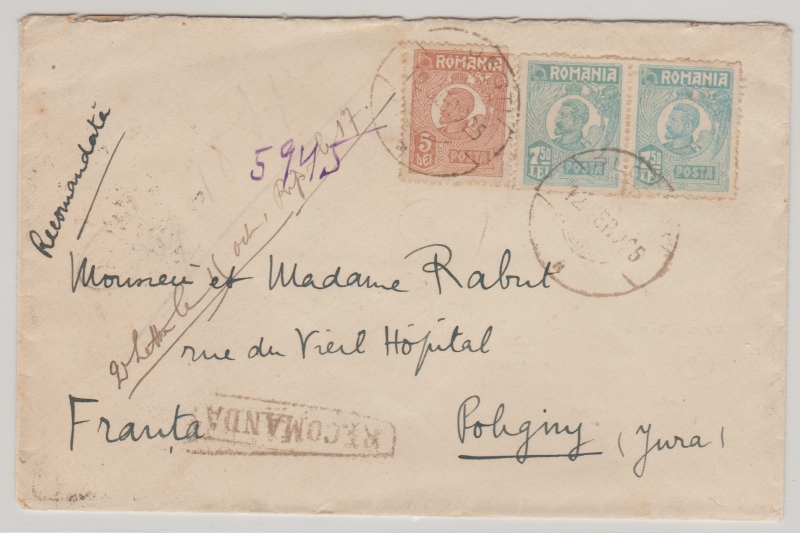 ROMANIA
5
LEI
POSTA
ROMANIA
7 50
LEI
POSTA
ROMANIA
7 50
LEI
POSTA
Recomandată
5945
Monsieur et Madame Rabut
rue du Vieil Hôpital
Franța
Poligny (Jura)
RECOMANDA